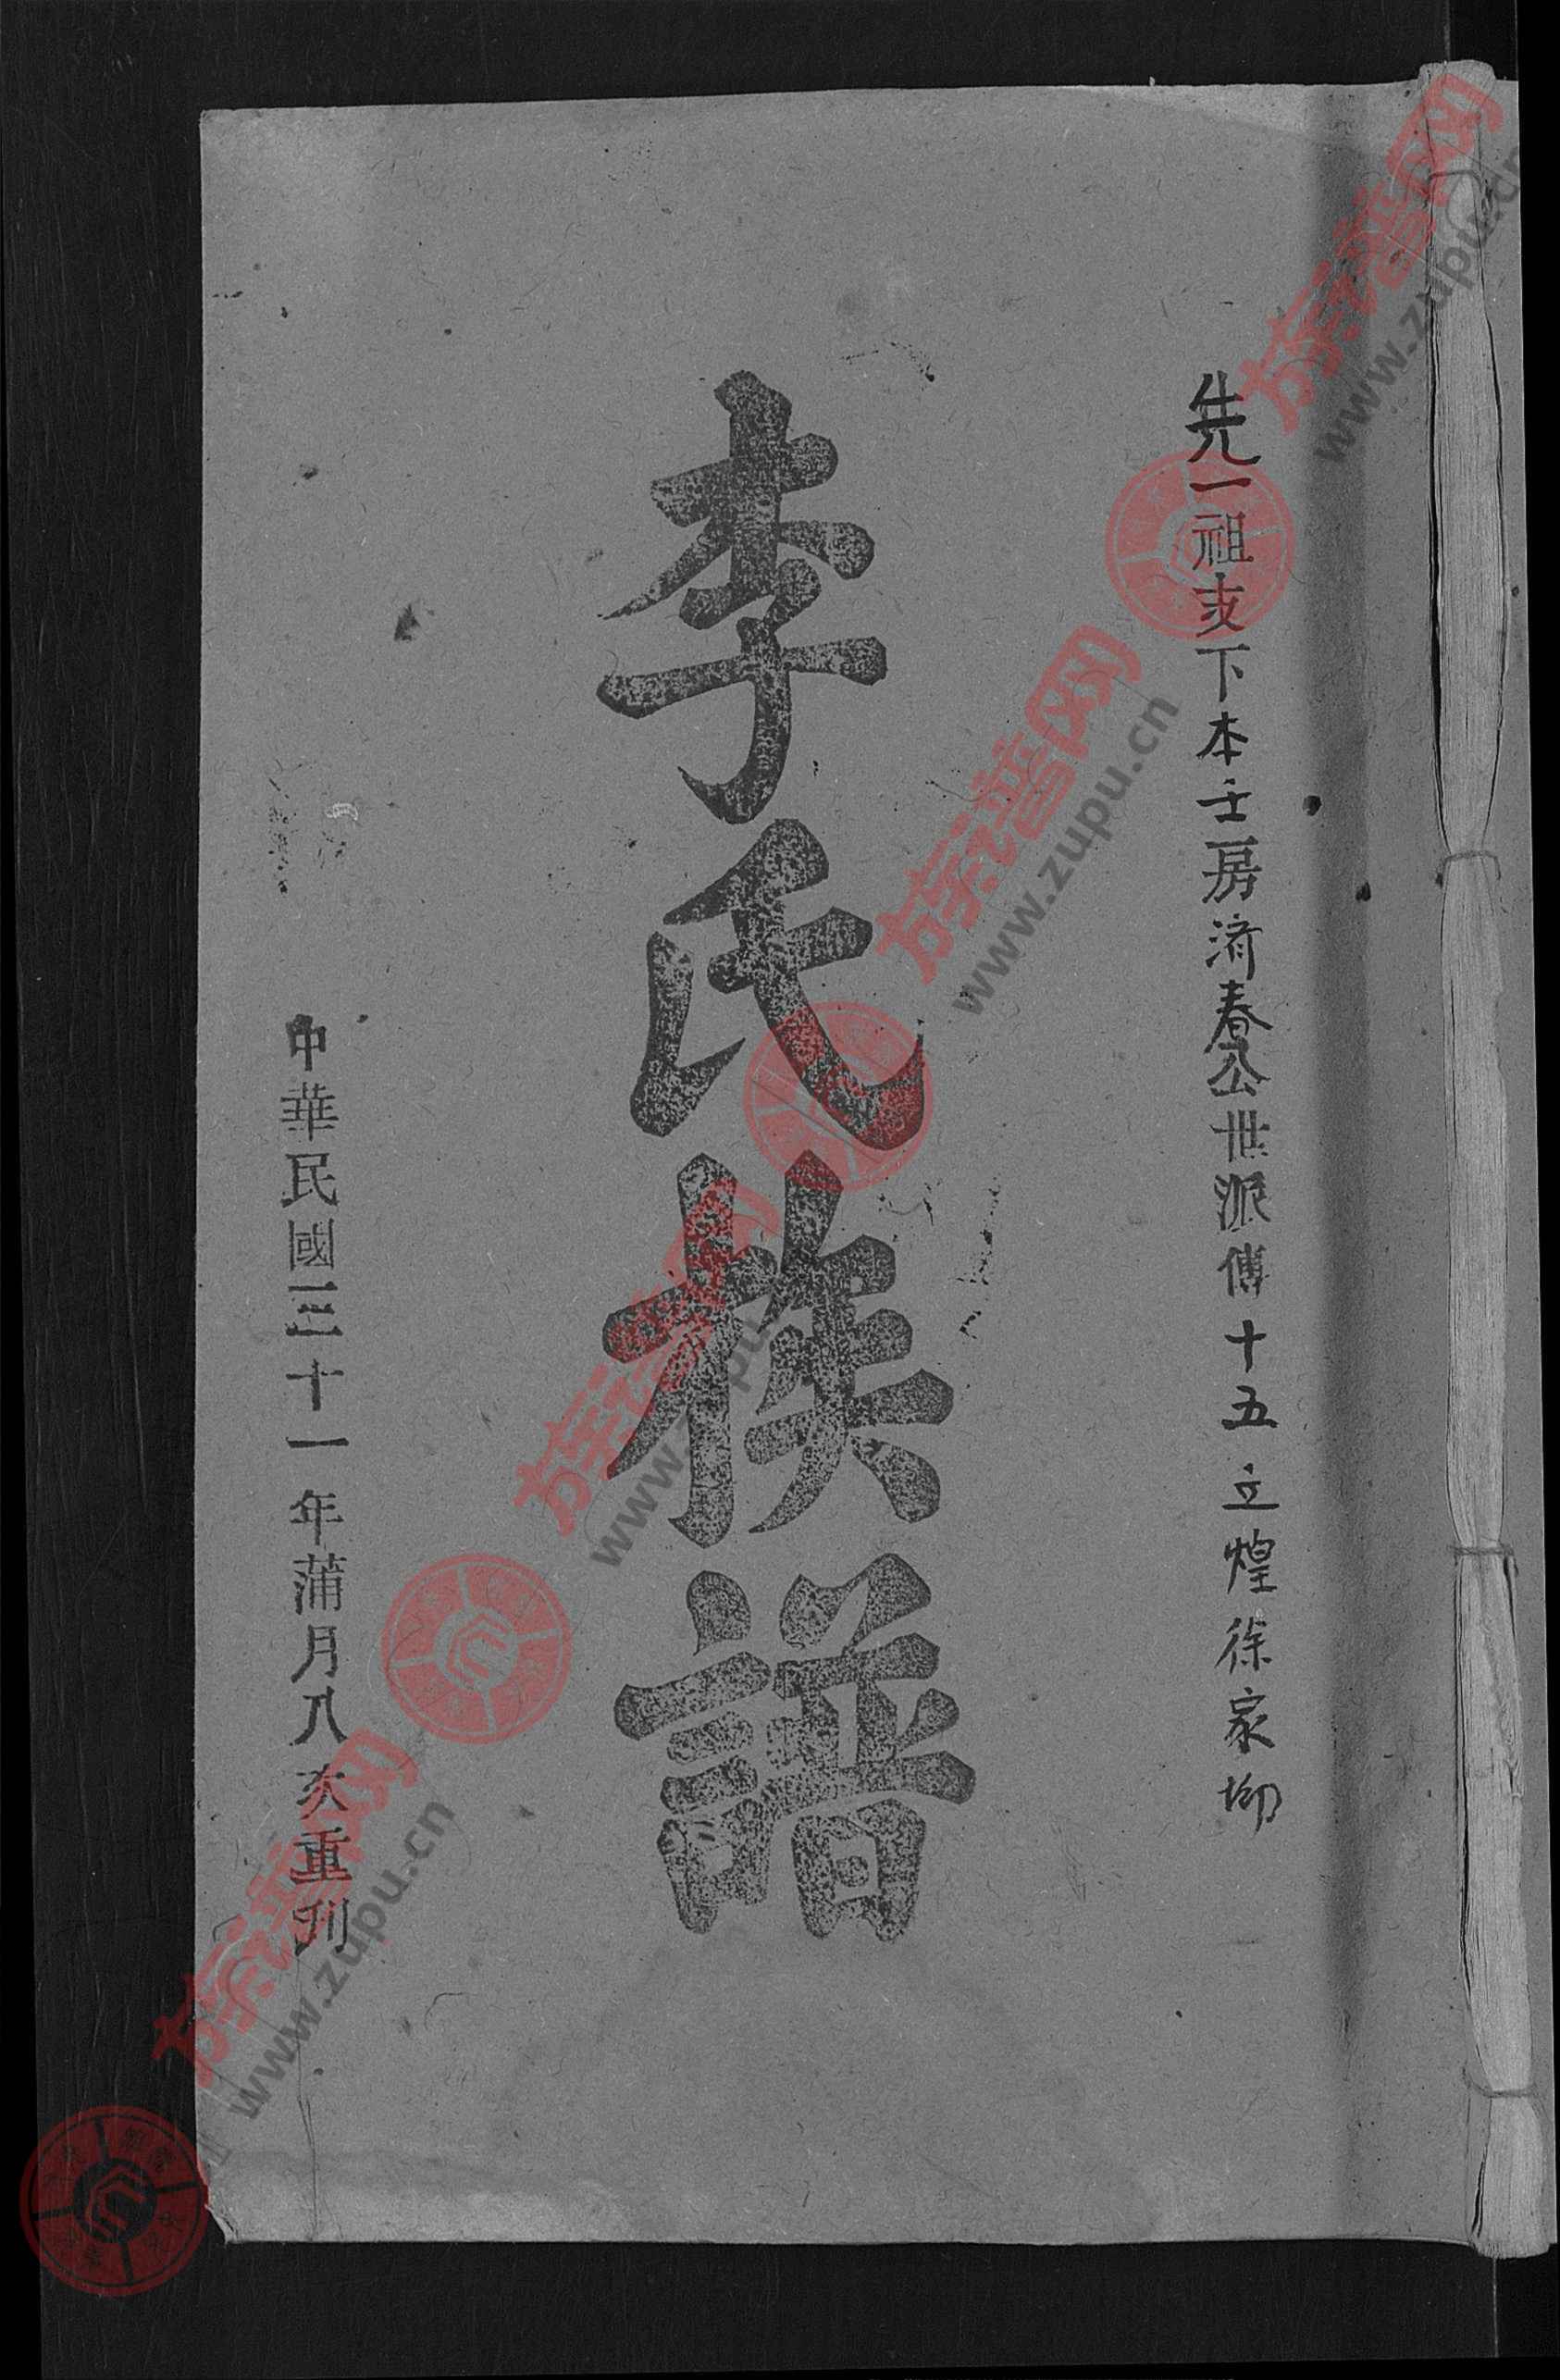 先一祖支下本士房济春公世派傳十五 立煌徐家坳
李氏族譜
中華民國三十一年蒲月八次重刋
族谱网
www.zupu.cn
族谱网
www.zupu.cn
族谱网
www.zupu.cn
族谱网
www.zupu.cn